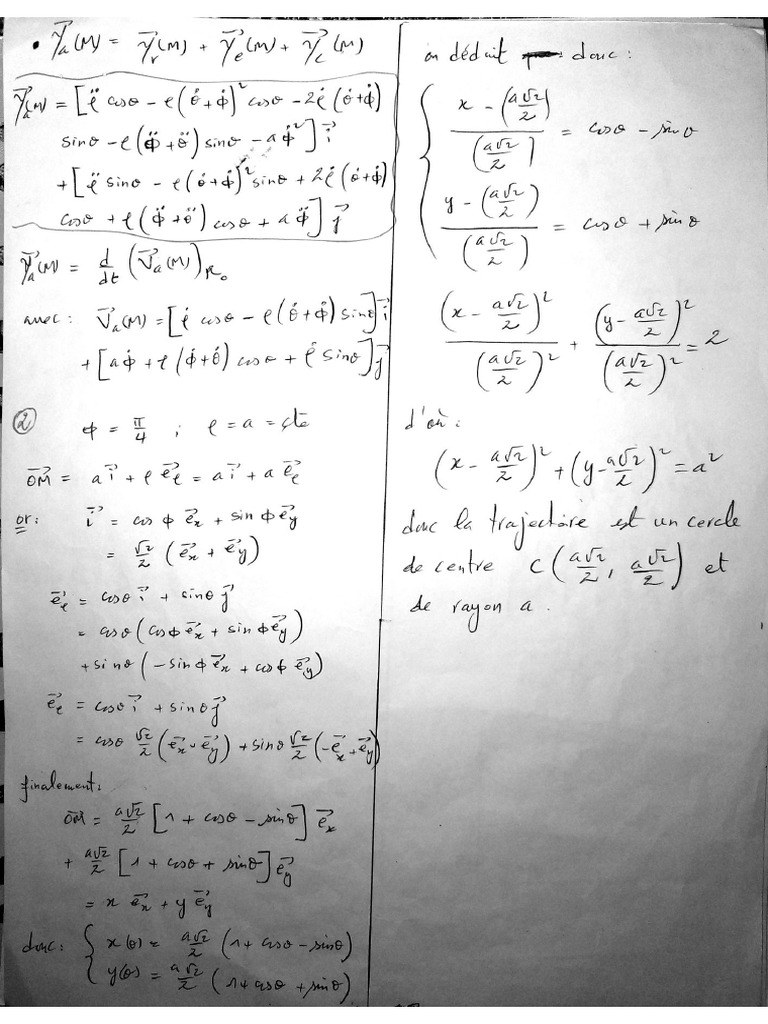 • γ⃗a(M) = γ⃗r(M) + γ⃗e(M) + γ⃗c(M)
γ⃗a(M) = [ρ̈ cosθ - ρ(θ̇+φ̇)² cosθ - 2ρ̇(θ̇+φ̇)
sinθ - ρ(φ̈+θ̈) sinθ - aφ̇²] i⃗
+ [ρ̈ sinθ - ρ(θ̇+φ̇)² sinθ + 2ρ̇(θ̇+φ̇)
cosθ + ρ(φ̈+θ̈) cosθ + a φ̈] j⃗
γ⃗a(M) = d/dt (V⃗a(M))R₀
avec : V⃗a(M) = [ρ̇ cosθ - ρ(θ̇+φ̇) sinθ] i⃗
+ [aφ̇ + ρ(φ̇+θ̇) cosθ + ρ̇ sinθ] j⃗
② φ = π/4 ; ρ = a = çte
OM⃗ = a i⃗ + ρ e⃗ρ = a i⃗ + a e⃗ρ
or : i⃗ = cos φ e⃗x + sin φ e⃗y
= √2/2 (e⃗x + e⃗y)
e⃗ρ = cosθ i⃗ + sinθ j⃗
= cosθ (cosφ e⃗x + sin φ e⃗y)
+ sinθ (-sin φ e⃗x + cosφ e⃗y)
e⃗ρ = cosθ i⃗ + sinθ j⃗
= cosθ √2/2 (e⃗x + e⃗y) + sinθ √2/2 (-e⃗x + e⃗y)
finalement :
OM⃗ = a√2/2 [1 + cosθ - sinθ] e⃗x
+ a√2/2 [1 + cosθ + sinθ] e⃗y
= x e⃗x + y e⃗y
donc : { x(θ) = a√2/2 (1 + cosθ - sinθ)
y(θ) = a√2/2 (1 + cosθ + sinθ)
on déduit donc :
{ (x - (a√2/2)) / (a√2/2) = cosθ - sinθ
(y - (a√2/2)) / (a√2/2) = cosθ + sinθ
(x - a√2/2)² / (a√2/2)² + (y - a√2/2)² / (a√2/2)² = 2
d'où :
(x - a√2/2)² + (y - a√2/2)² = a²
donc la trajectoire est un cercle
de centre C (a√2/2, a√2/2) et
de rayon a.